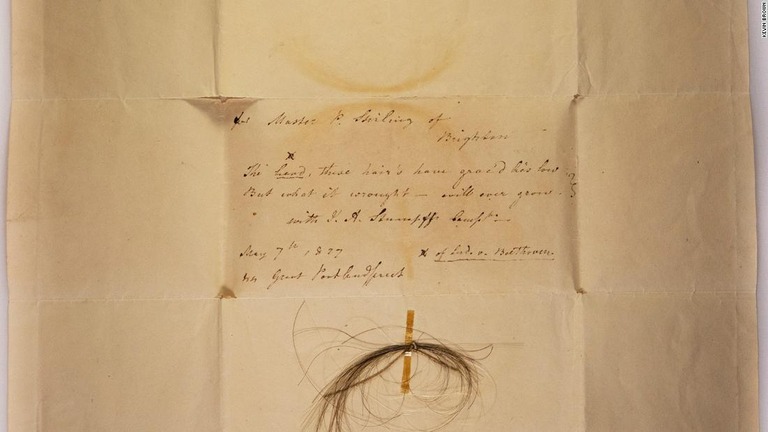 for Master P. Stirling of
Brighton
x
The head, these hair's have grac'd lies low
But what it wrought — will ever grow.
with J. A. Stumpff's Compts.
May 7th 1827
x of Lud. v. Beethoven.
Great Portland Street
KEVIN BROWN